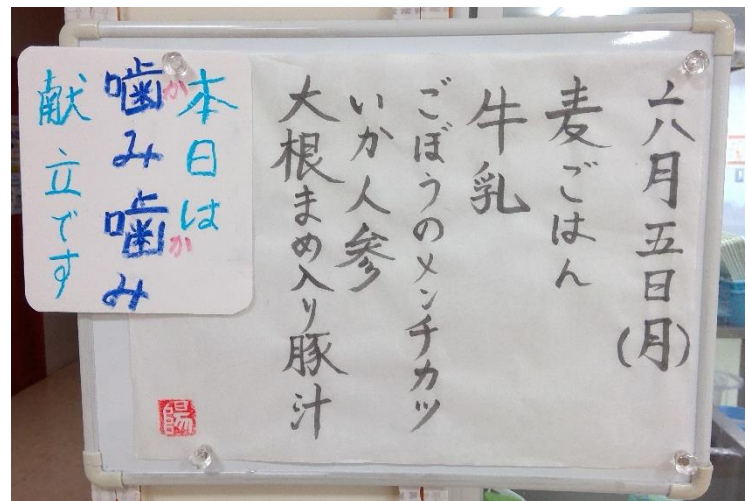 六月五日(月)
麦ごはん
牛乳
ごぼうのメンチカツ
いか人参
大根まめ入り豚汁
本日は
か か
噛み噛み
献立です